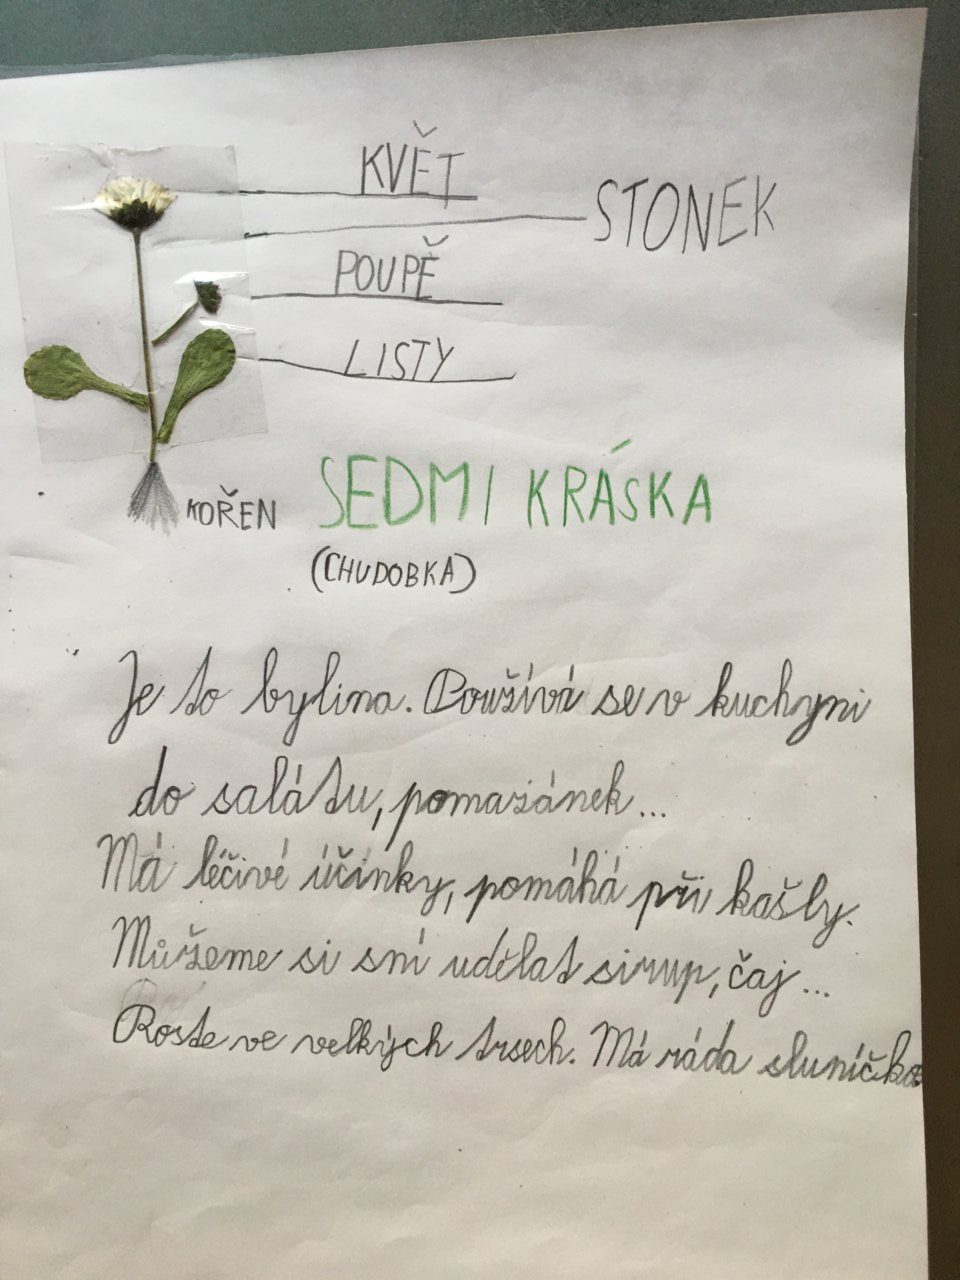 KVĚT
STONEK
POUPĚ
LISTY
KOŘEN
SEDMI KRÁSKA
(CHUDOBKA)
Je to bylina. Používá se v kuchyni
do salátu, pomazánek...
Má léčivé účinky, pomáhá při kašly.
Můžeme si sní udělat sirup, čaj...
Roste ve velkých trsech. Má ráda sluníčko